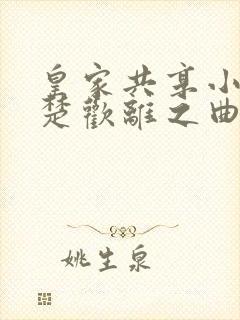 皇家共享小
楚歡離之曲
姚生泉